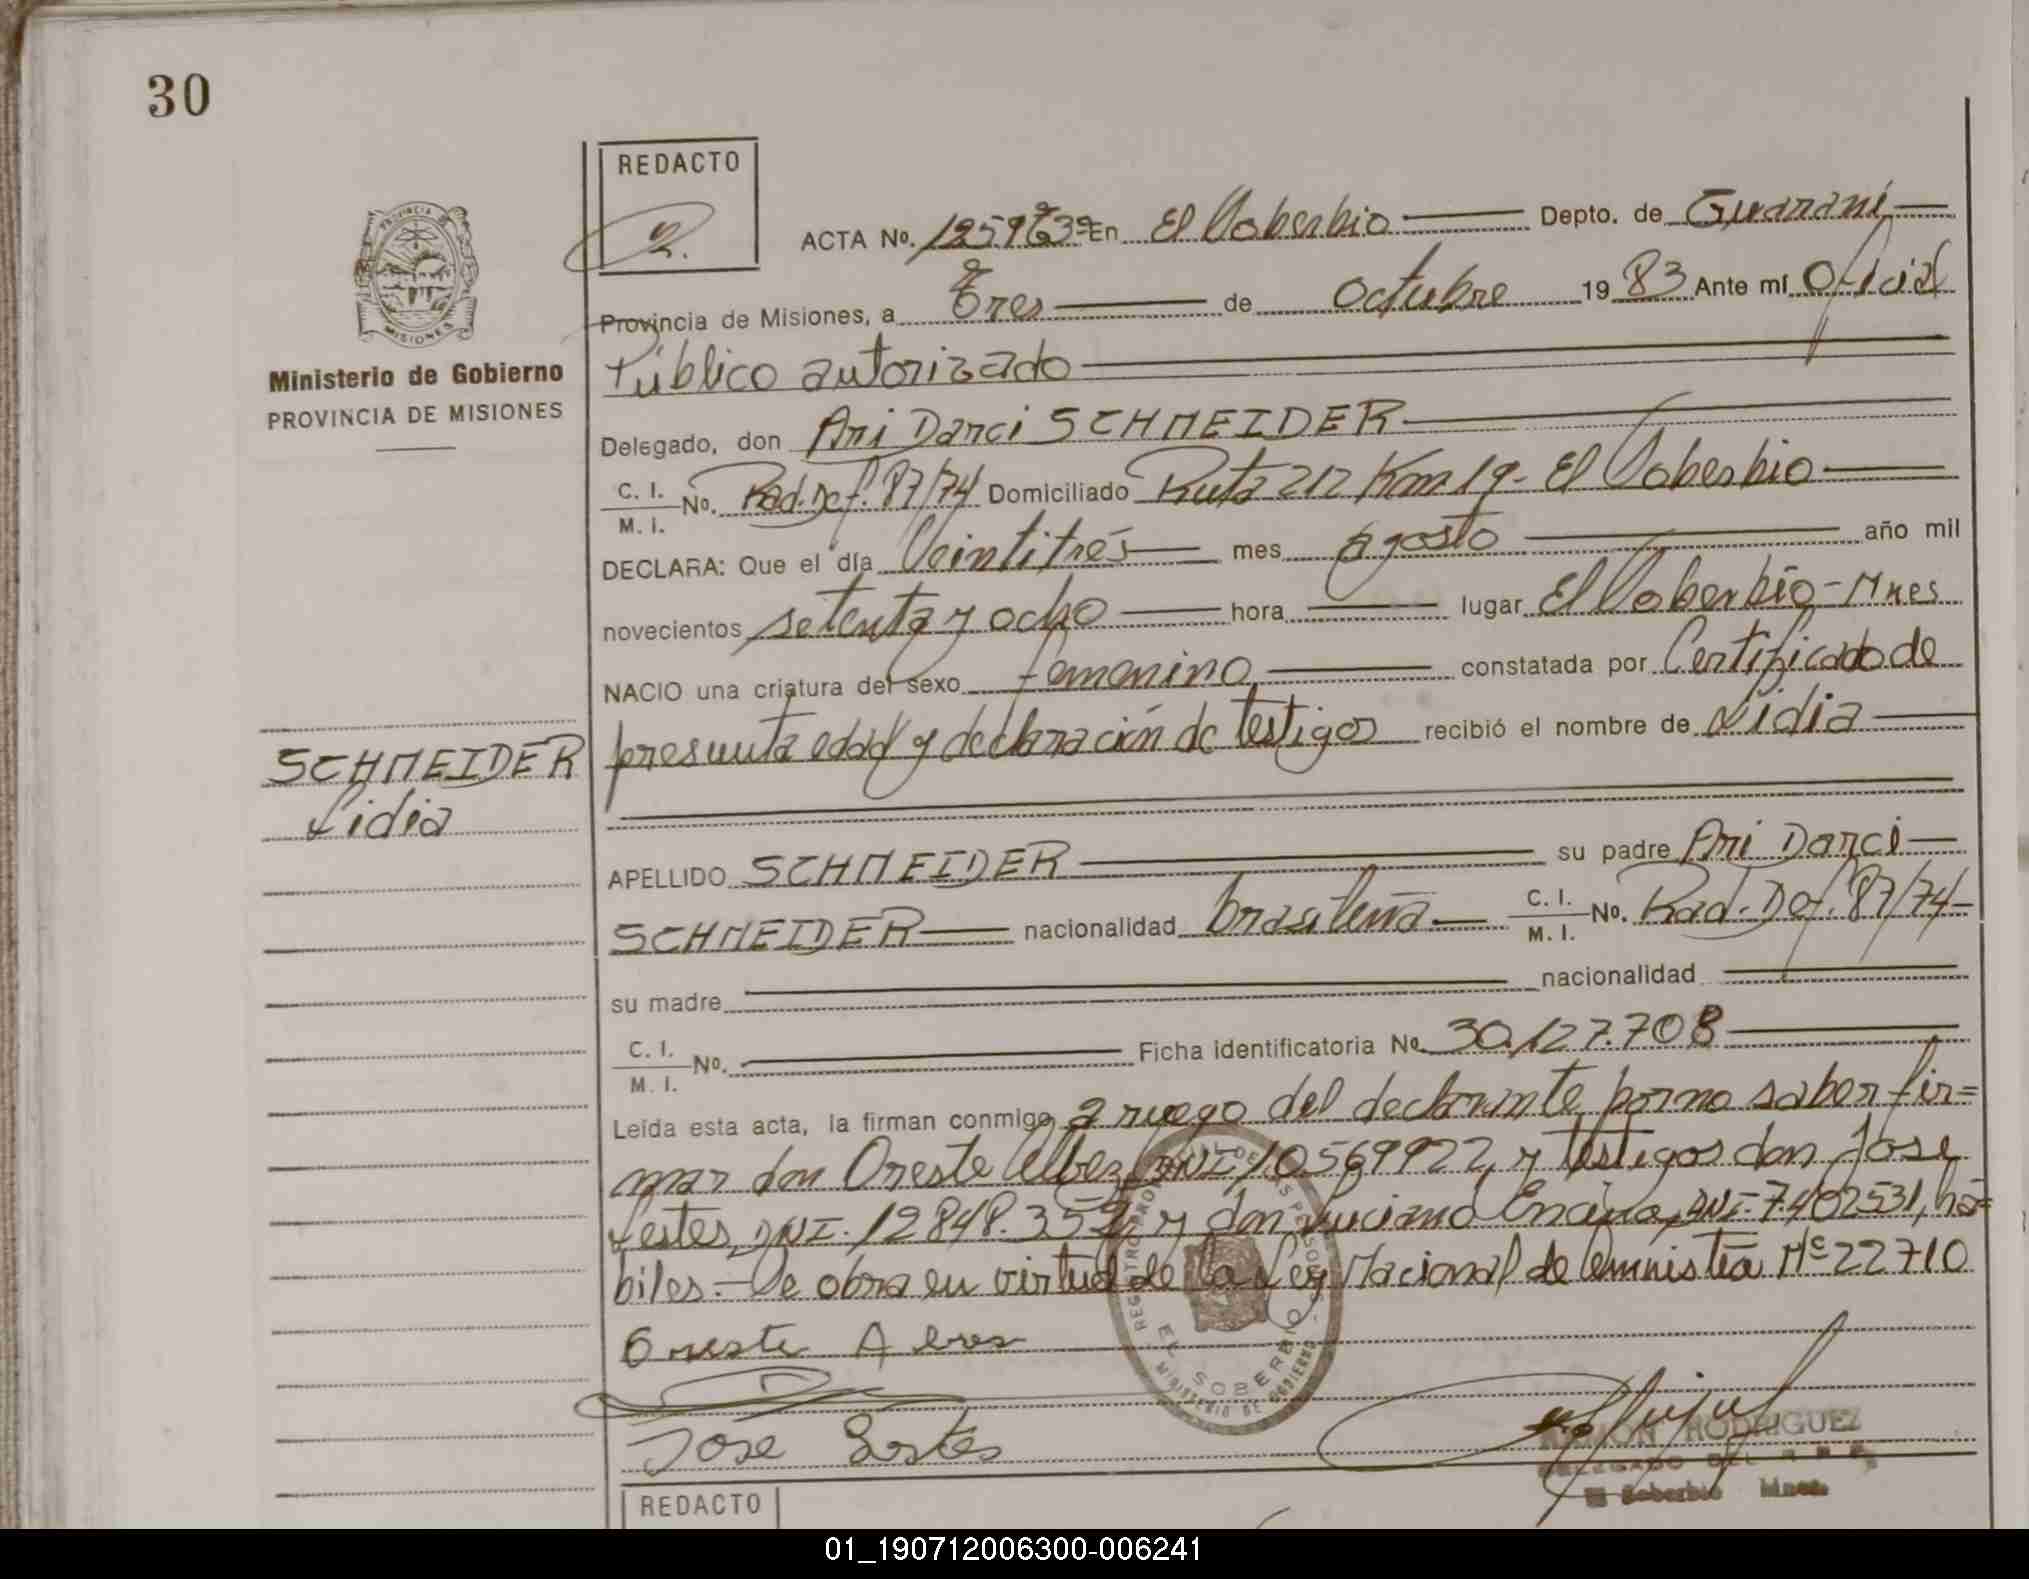 30
REDACTO
2.
ACTA No. 1259 En El Soberbio Depto. de Guaraní
Provincia de Misiones, a Tres de octubre 1983 Ante mí Oficial
Público autorizado
Delegado, don Ari Darci SCHNEIDER
C. I. M. I. No. Rad. Def. 87/74 Domiciliado Ruta 212 Km 19 - El Soberbio
DECLARA: Que el día Veintitrés mes agosto año mil
novecientos setenta y ocho hora lugar El Soberbio - Mnes
NACIO una criatura del sexo femenino constatada por Certificado de
presunta edad y declaración de testigos recibió el nombre de Lidia
APELLIDO SCHNEIDER su padre Ari Darci
SCHNEIDER nacionalidad brasileña C. I. M. I. No. Rad. Def. 87/74
su madre nacionalidad
C. I. M. I. No. Ficha identificatoria No. 30.127.708
Leída esta acta, la firman conmigo a ruego del declarante por no saber fir=
mar don Oreste Alvez, DNI. 10.569922, y testigos don Jose
DNI. 12.848.352, y don Luciano Encina, DNI. 7.402531, há=
biles.- Se obra en virtud de la Ley Nacional de Amnistía Nº 22710
Oreste
Jose
Ministerio de Gobierno
PROVINCIA DE MISIONES
SCHNEIDER
Lidia
PROVINCIA
MISIONES
EL SOBERBIO
MINISTERIO DE GOBIERNO
RAMON RODRIGUEZ
DELEGADO DEL
El Soberbio Mnes.
REDACTO
01_190712006300-006241